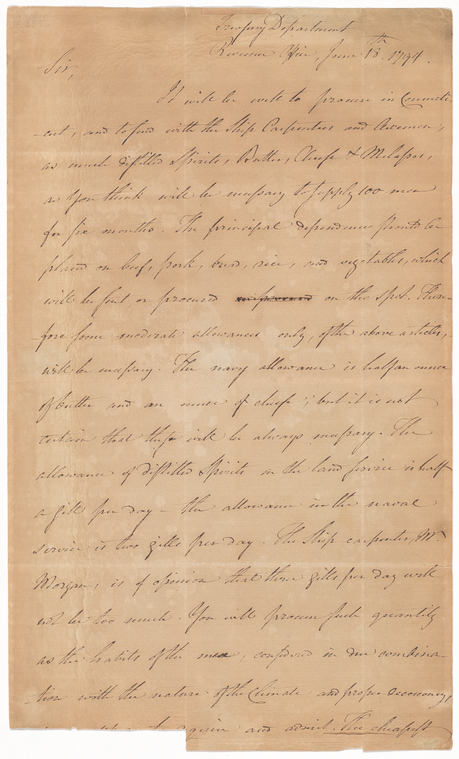 Treasury Department
Revenue Office, June 13th. 1794.
Sir,
It will be well to procure in Connecti-
-cut, and to send with the Ship Carpenters and Axemen,
as much distilled Spirits, Butter, Cheese & Melasses,
as you think will be necessary to supply 100 men
for six months. The principal dependence should be
placed on beef, pork, bread, rice, and vegetables, which
will be sent or procured on the spot. There-
fore some moderate allowances only, of the above articles,
will be necessary. The navy allowance is half an ounce
of butter and an ounce of cheese; but it is not
certain that these will be always necessary. The
allowance of distilled Spirits in the land service is half
a gill per day – the allowance in the naval
service is two gills per day. The Ship carpenter, Mr.
Morgan, is of opinion that three gills per day will
not be too much. You will procure such quantity
as the habits of the men, considered in due combina-
-tion with the nature of the Climate and proper oeconomy,
and admit. The cheapest